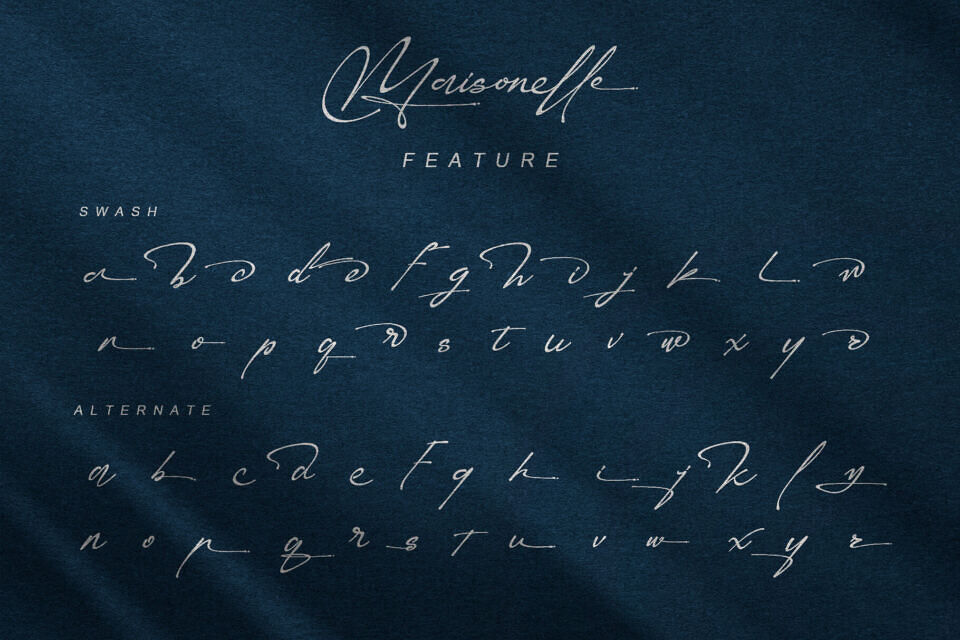 Maisonelle
FEATURE
SWASH
a b c d e f g h i j k l m
n o p q r s t u v w x y z
ALTERNATE
a b c d e f g h i j k l m
n o p q r s t u v w x y z